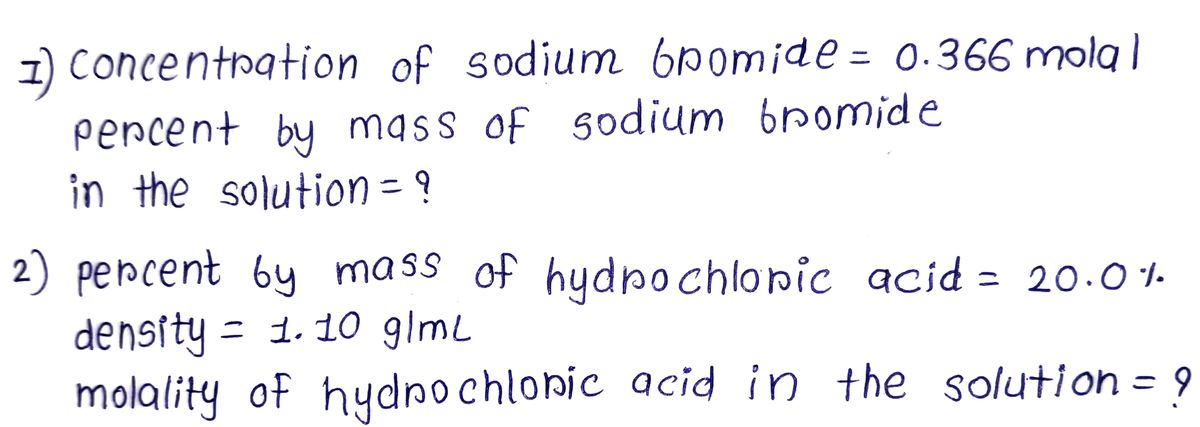 I) Concentration of sodium bromide = 0.366 molal
percent by mass of sodium bromide
in the solution = ?
2) percent by mass of hydrochloric acid = 20.0 %
density = 1.10 g/mL
molality of hydrochloric acid in the solution = ?